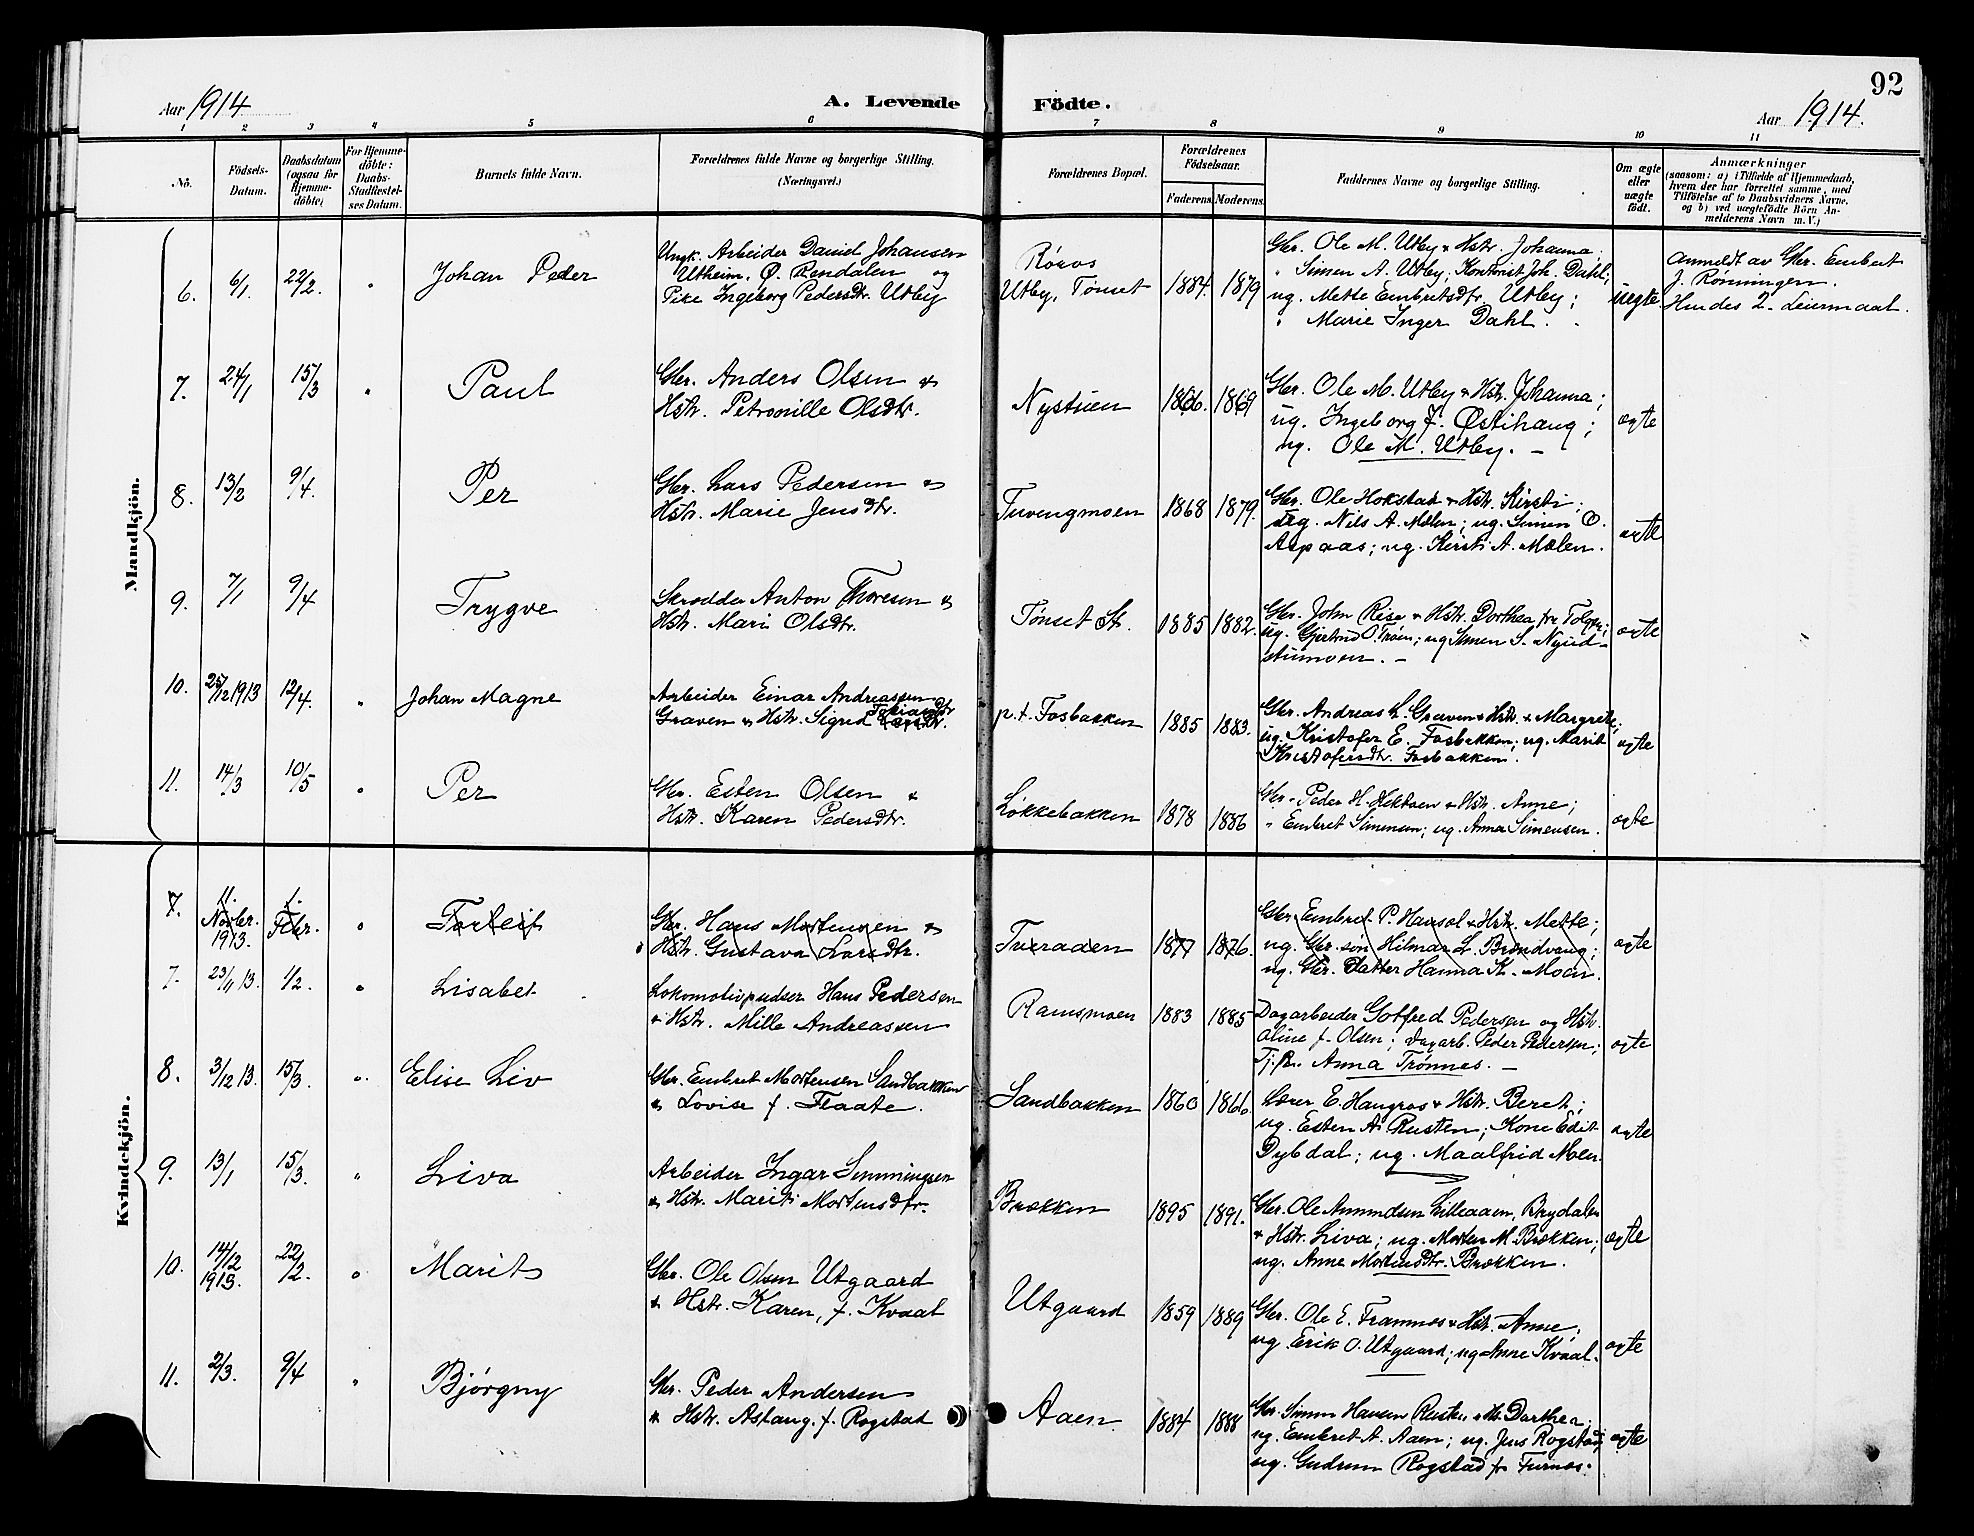 92
Aar 1914
A. Levende Födte.
Aar 1914.
1 2 3 4 5 6 7 8 9 10 11
No.
Födsels-
Datum.
Daabsdatum
(ogsaa for
Hjemme-
döbte)
For Hjemme-
döbte:
Daabs-
Stadfæstel-
ses Datum.
Barnets fulde Navn.
Forældrenes fulde Navne og borgerlige Stilling.
(Næringsvei.)
Forældrenes Bopæl.
Forældrenes
Födselsaar.
Faderens Moderens
Faddernes Navne og borgerlige Stilling.
Om ægte
eller
uægte
født.
Anmærkninger
(saasom: a) i Tilfælde af Hjemmedaab,
hvem der har forrettet samme, med
Tilföielse af to Daabsvidners Navne,
og b) ved uægtefödte Börn An-
melderens Navn m. V.)
Mandkjön.
6. 6/1. 22/2. " Johan Peder
Ungk. Arbeider Daniel Johansen
Utheim, Ø. Rendalen og
Pike Ingeborg Pedersdtr. Utby
Røros
Utby, Tønset
1884. 1879
Gbr. Ole M. Utby & Hstr. Johanna;
" Simen A. Utby; Kontorist Joh. Dahl;
ug. Mette Embretsdtr. Utby;
" Marie Inger Dahl.
uegte
Anmeldt av Gbr. Embret
J. Rønningen.
Hendes 2. Leiermaal.
7. 24/1 15/3 " Paul
Gbr. Anders Olsen &
Hstr. Petronille Olsdtr.
Nystuen
1866. 1869
Gbr. Ole M. Utby & Hstr. Johanna;
ug. Ingeborg J. Østihaug;
ug. Ole M. Utby. –
ægte
8. 13/2 9/4. Per
Gbr. Lars Pedersen &
Hstr. Marie Jensdtr.
Tuvengmoen
1868 1879.
Gbr. Ole Hokstad & Hstr. Kirsti;
ug. Nils A. Mælen; ug. Simen O.
Aspaas; ug. Kirsti A. Mælen.
ægte
9. 7/1 9/4 Trygve
Skrædder Anton Thoresen &
Hstr. Mari Olsdtr.
Tønset St.
1885 1882.
Gbr. John Rise & Hstr. Dorthea fra Tolgen;
ug. Gjertrud O. Trøen; ug Simen S. Nyud-
stumoen. –
ægte
10. 25/12 1913 12/4. " Johan Magne
Arbeider Einar Andreassen
Graven & Hstr. Sigrid Tobiasdtr.
p.t. Fosbakken
1885 1883.
Gbr. Andreas L. Graven & Hstr. Margrete;
ug. Kristofer E. Fosbakken; ug. Marit
Kristofersdtr. Fosbakken.
ægte
11. 14/3 10/5 " Per
Gbr. Esten Olsen &
Hstr. Karen Pedersdtr.
Løkkebakken
1878 1886
Gbr. Peder H. Hektoen & Hstr. Anne;
" Embret Simensen; ug. Anna Simensen.
ægte
Kvindekjön.
7. 11. Novbr. 1913. 1. Febr. " Torleif
Gbr. Hans Mortensen &
Hstr. Gustava Larsdtr.
Tveraaen
1877 1876.
Gbr. Embret P. Hansol & Hstr. Mette;
ug. Gbr. søn Hilmar L. Brendvang;
ug. Gbr. datter Hanna K. Moen.
ægte
7. 23/11 13. 1/2. " Lisabet
Lokomotivpudser Hans Pedersen
& Hstr. Mille Andreassen
Ramsmoen
1883 1885
Dagarbeider Gotfred Pedersen og Hstr.
Oline f. Olsen; Dagarb. Peder Pedersen;
Tj.p. Anna Trønnes. –
ægte
8. 3/12 13. 15/3. " Elise Liv
Gbr. Embret Mortensen Sandbakken
& Lovise f. Flaate.
Sandbakken
1860 1866
Lærer E. Haugros & Hstr. Beret;
ug. Esten A. Rusten; Kone Edit
Dybdal; ug. Maalfrid Moen.
ægte
9. 13/1 15/3. " Liva
Arbeider Ingar Simmingsen
& Hstr. Marit Mortensdtr.
Brækken
1895 1891.
Gbr. Ole Amundsen Lilleaaen, Brydalen
& Hstr. Liva; ug. Morten M. Brækken;
ug. Anne Mortensdtr. Brækken.
ægte
10. 14/12 1913. 22/2. " Marit
Gbr. Ole Olsen Utgaard
& Hstr. Karen, f. Kvaal
Utgaard
1859 1889
Gbr. Ole E. Tramnes & Hstr. Anne;
ug. Erik O. Utgaard; ug Anne Kvaal.
ægte
11. 2/3. 9/4 " Bjørgny
Gbr. Peder Andersen
& Hstr. Aslaug, f. Rogstad
Aaen.
1884 1888
Gbr. Simen Hansen Rusten & Hst. Dorthea;
ug. Embret A. Aaen; ug. Jens Rogstad;
ug. Gudrun Rogstad fr Furnes.
ægte